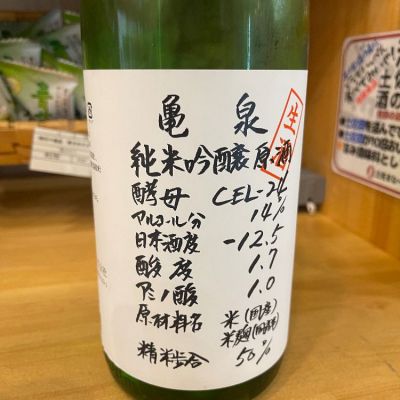 亀泉
生酒
純米吟醸原酒
酵母 CEL-24
アルコール分 14%
日本酒度 -12.5
酸度 1.7
アミノ酸 1.0
原材料名 米(国産)
米麹(国産)
精米歩合 50%